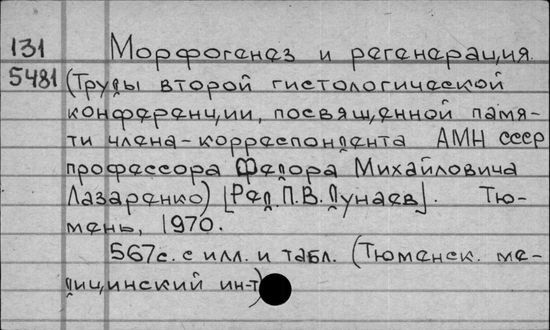 131 Морфогенез и регенерация.
5481 (Труды второй гистологической
конференции, посвященной памя-
ти члена-корреспондента АМН СССР
профессора Федора Михайловича
Лазаренко) [Ред. П.В. Дунаев]. Тю-
мень, 1970.
567с. с илл. и табл. (Тюменск. ме-
дицинский ин-т)